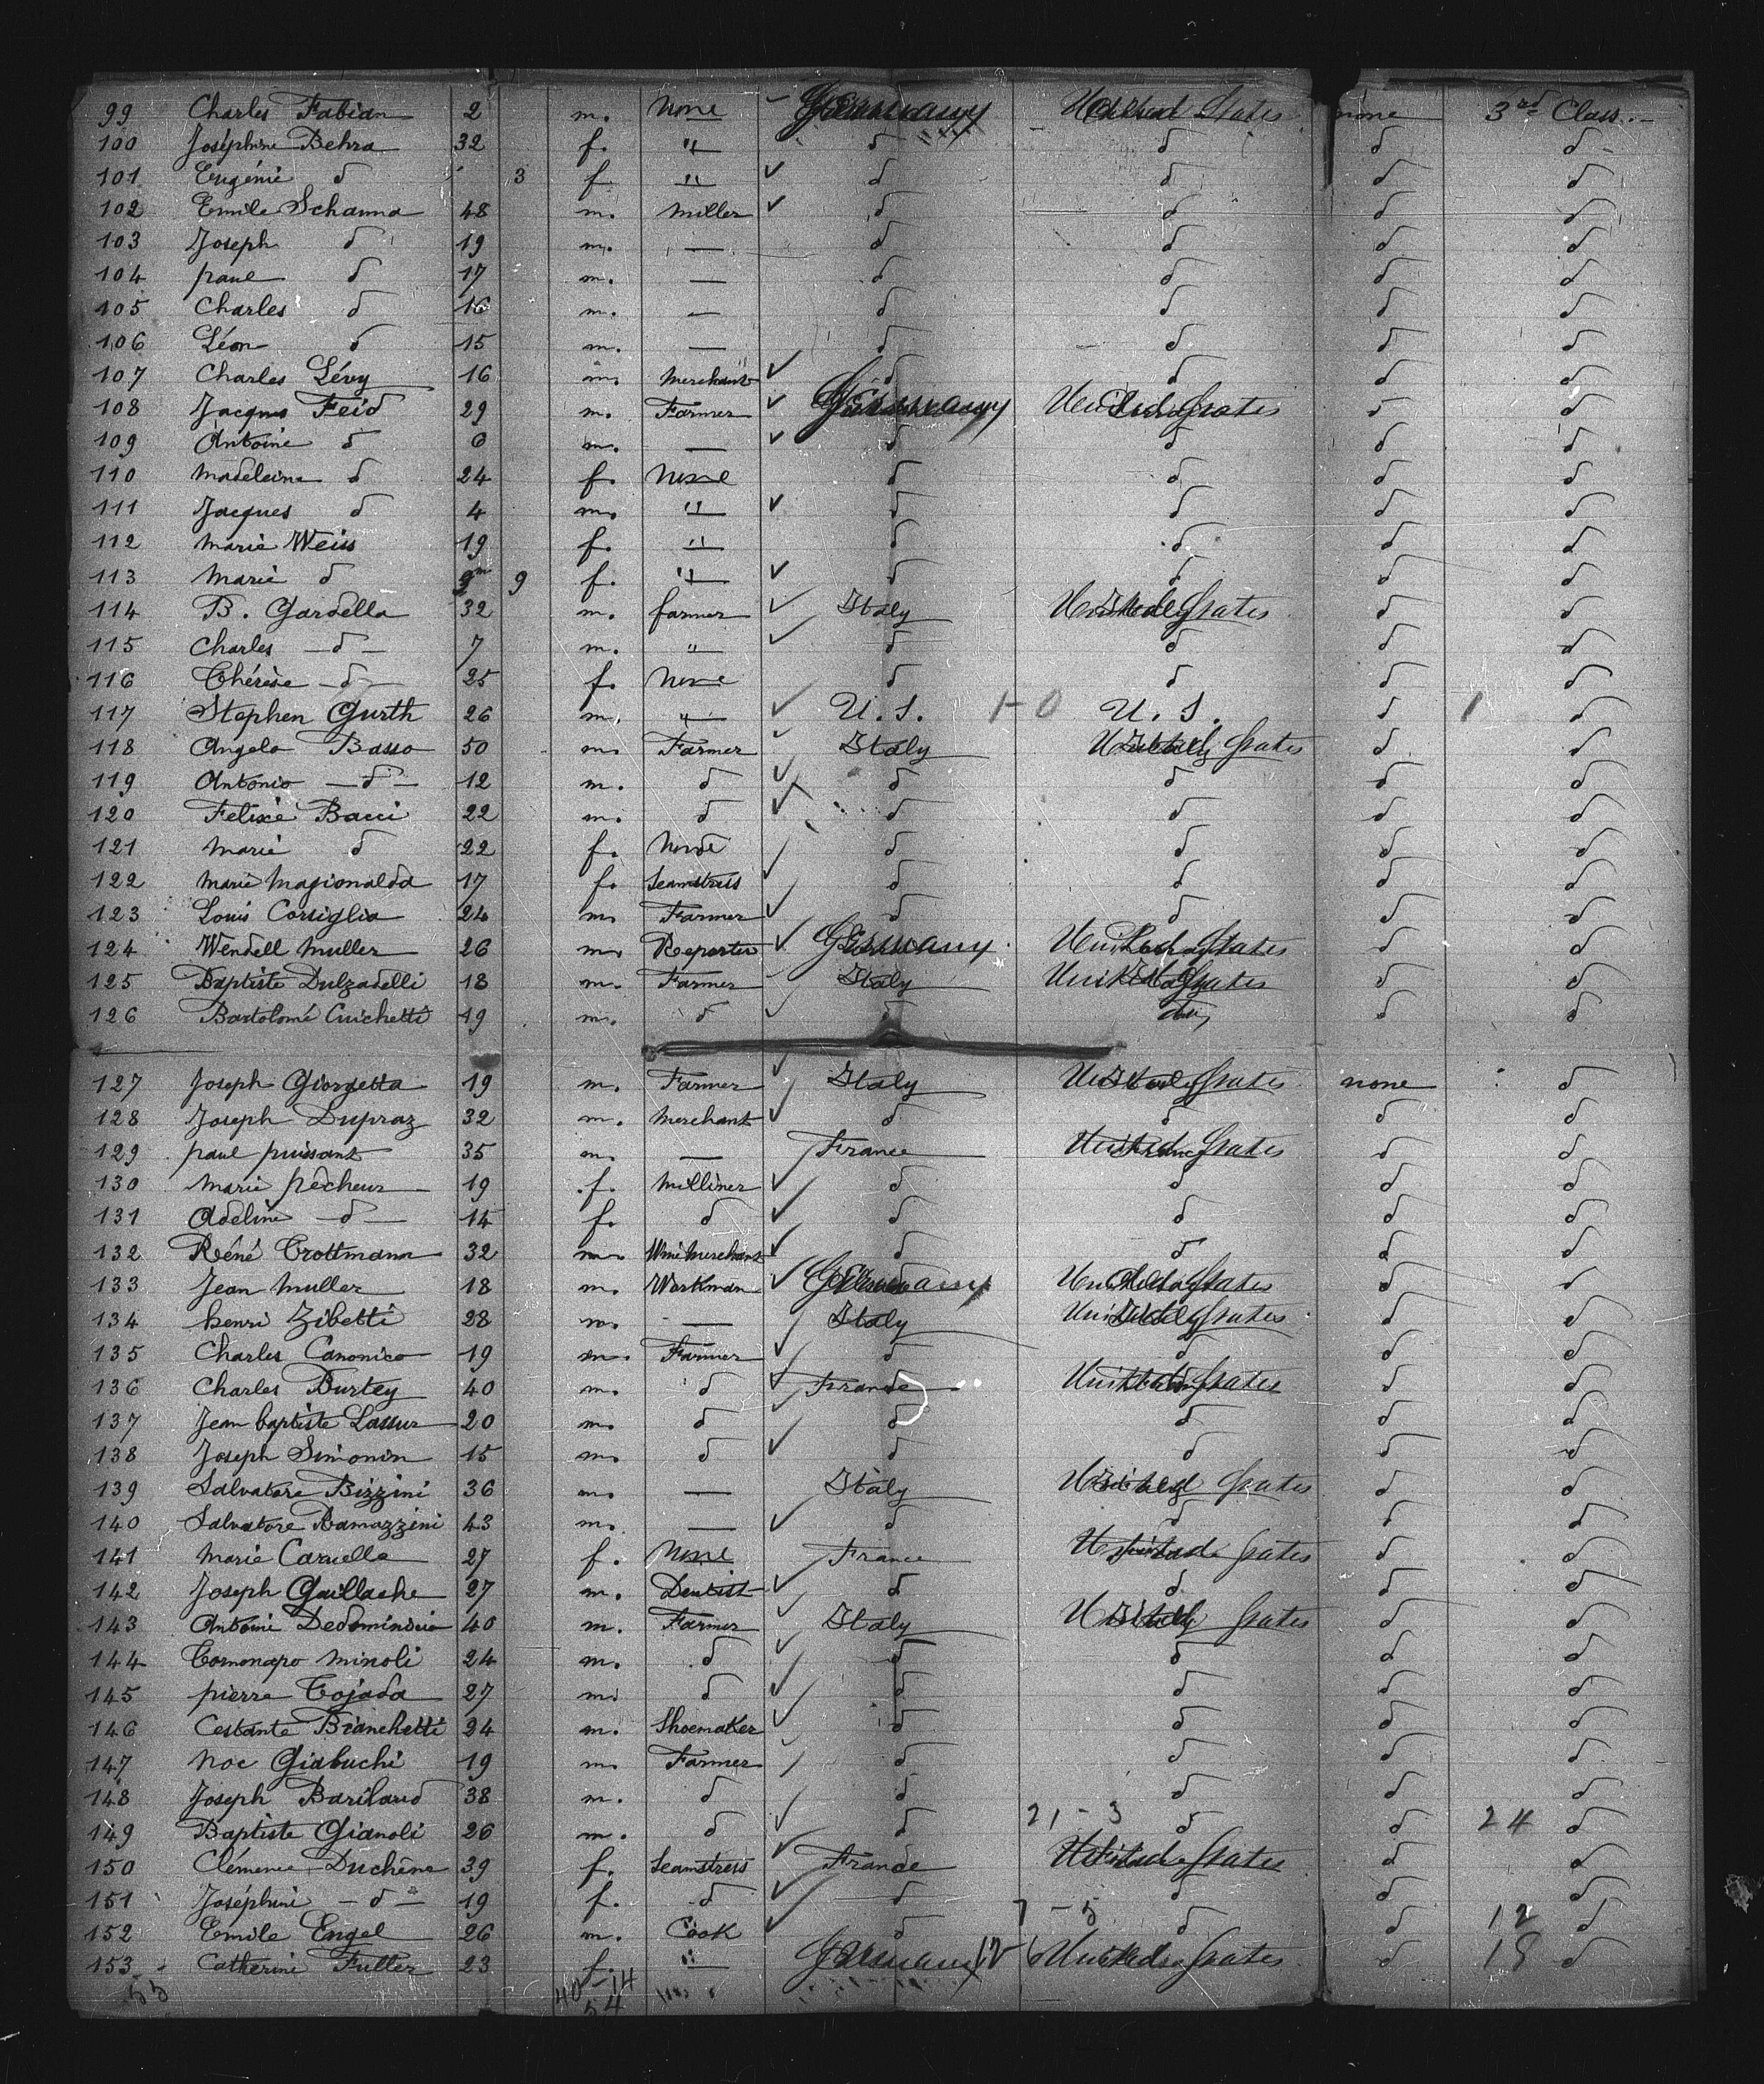 99 Charles Fabian 2 m. None Germany United States none 3rd Class
100 Joséphine Behra 32 f. " d d d d
101 Eugénie d 3 f " d d d d
102 Emile Schamna 48 m. Miller d d d d
103 Joseph d 19 m. — d d d d
104 paul d 17 m. — d d d d
105 Charles d 16 m. — d d d d
106 Léon d 15 m. — d d d d
107 Charles Lévy 16 m. Merchant d d d d
108 Jacques Feid 29 m. Farmer Germany United States d d
109 Antoine d 6 m. — d d d d
110 Madeleine d 24 f. None d d d d
111 Jacques d 4 m. " d d d d
112 Marie Weiss 19 f. " d d d d
113 Marie d 9m 9 f. " d d d d
114 B. Gardella 32 m. farmer Italy United States d d
115 Charles — d — 7 m. " d d d d
116 Thérèse — d — 25 f. None d d d d
117 Stephen Gurth 26 m. " U. S. 1-0 U. S. d 1 d
118 Angelo Basso 50 m. Farmer Italy United States d d
119 Antonio — d — 12 m. d d d d d
120 Felixé Bacci 22 m. d d d d d
121 Marie d 22 f. None d d d d
122 Marie Magionalda 17 f. Seamstress d d d d
123 Louis Corsiglia 24 m. Farmer d d d d
124 Wendell Muller 26 m. Reporter Germany United States d d
125 Baptiste Dulzadelli 18 m. Farmer Italy United States d d
126 Bartolomé Cuichetti 19 m. d d d d
127 Joseph Giorgetta 19 m. Farmer Italy United States none d
128 Joseph Dupraz 32 m. Merchant d d d d
129 paul puissant 35 m. — France United States d d
130 Marie pêcheur 19 f. Milliner d d d d
131 Adeline — d — 14 f. d d d d d
132 Réné Trottmann 32 m. Wine Merchant d d d d
133 Jean Muller 18 m. Workman Germany United States d d
134 henri Zibetti 28 m. — Italy United States d d
135 Charles Canonico 19 m. Farmer d d d d
136 Charles Burtey 40 m. d France United States d d
137 Jean baptiste Lassus 20 m. d d d d d
138 Joseph Simonin 15 m. d d d d d
139 Salvatore Bizzini 36 m. — Italy United States d d
140 Salvatore Ramazzini 43 m. — d d d d
141 Marie Caruelle 27 f. None France United States d d
142 Joseph Guillache 27 m. Dentist d d d d
143 Antoine 40 m. Farmer Italy United States d d
144 Minoli 24 m. d d d d d
145 pierre Tojada 27 m. d d d d d
146 Cestante Bianchetti 24 m. Shoemaker d d d d
147 Noe Giabuchi 19 m. Farmer d d d d
148 Joseph Barilaud 38 m. d d d d d
149 Baptiste Gianoli 26 m. d d 21-3 d d 24 d
150 Clémence Duchêne 39 f. Seamstress France United States d d
151 Joséphine — d — 19 f. d d d d d
152 Emile Engel 26 m. Cook d 7-5 d d 12 d
153 Catherine Fuller 23 f. " Germany 12-6 United States d 18 d
55 40-14
54